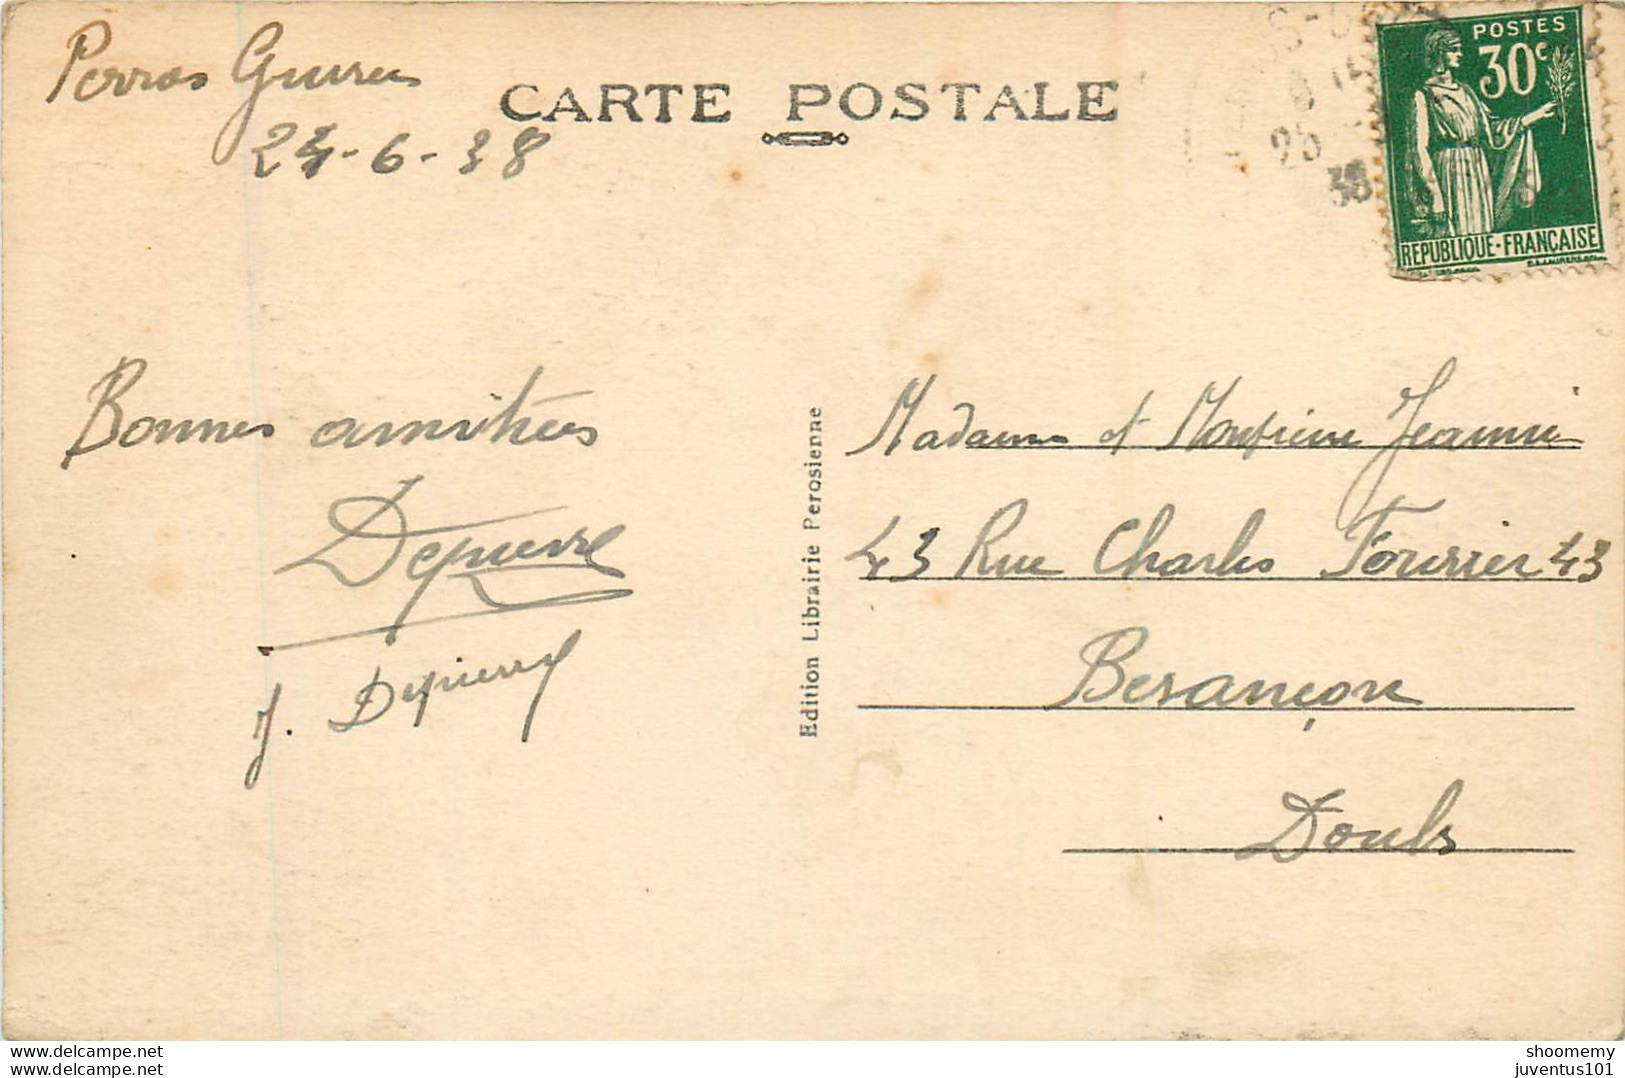 Perros Guirec
24-6-38
CARTE POSTALE
POSTES
30c
REPUBLIQUE-FRANÇAISE
25
38
Bonnes amitiées
Depierre
J. Depierre
Edition Librairie Perosienne
Madame et Monsieur Jeannin
43 Rue Charles Fourrier 43
Besançon
Doubs
delcampe.net
shoomemy
juventus101